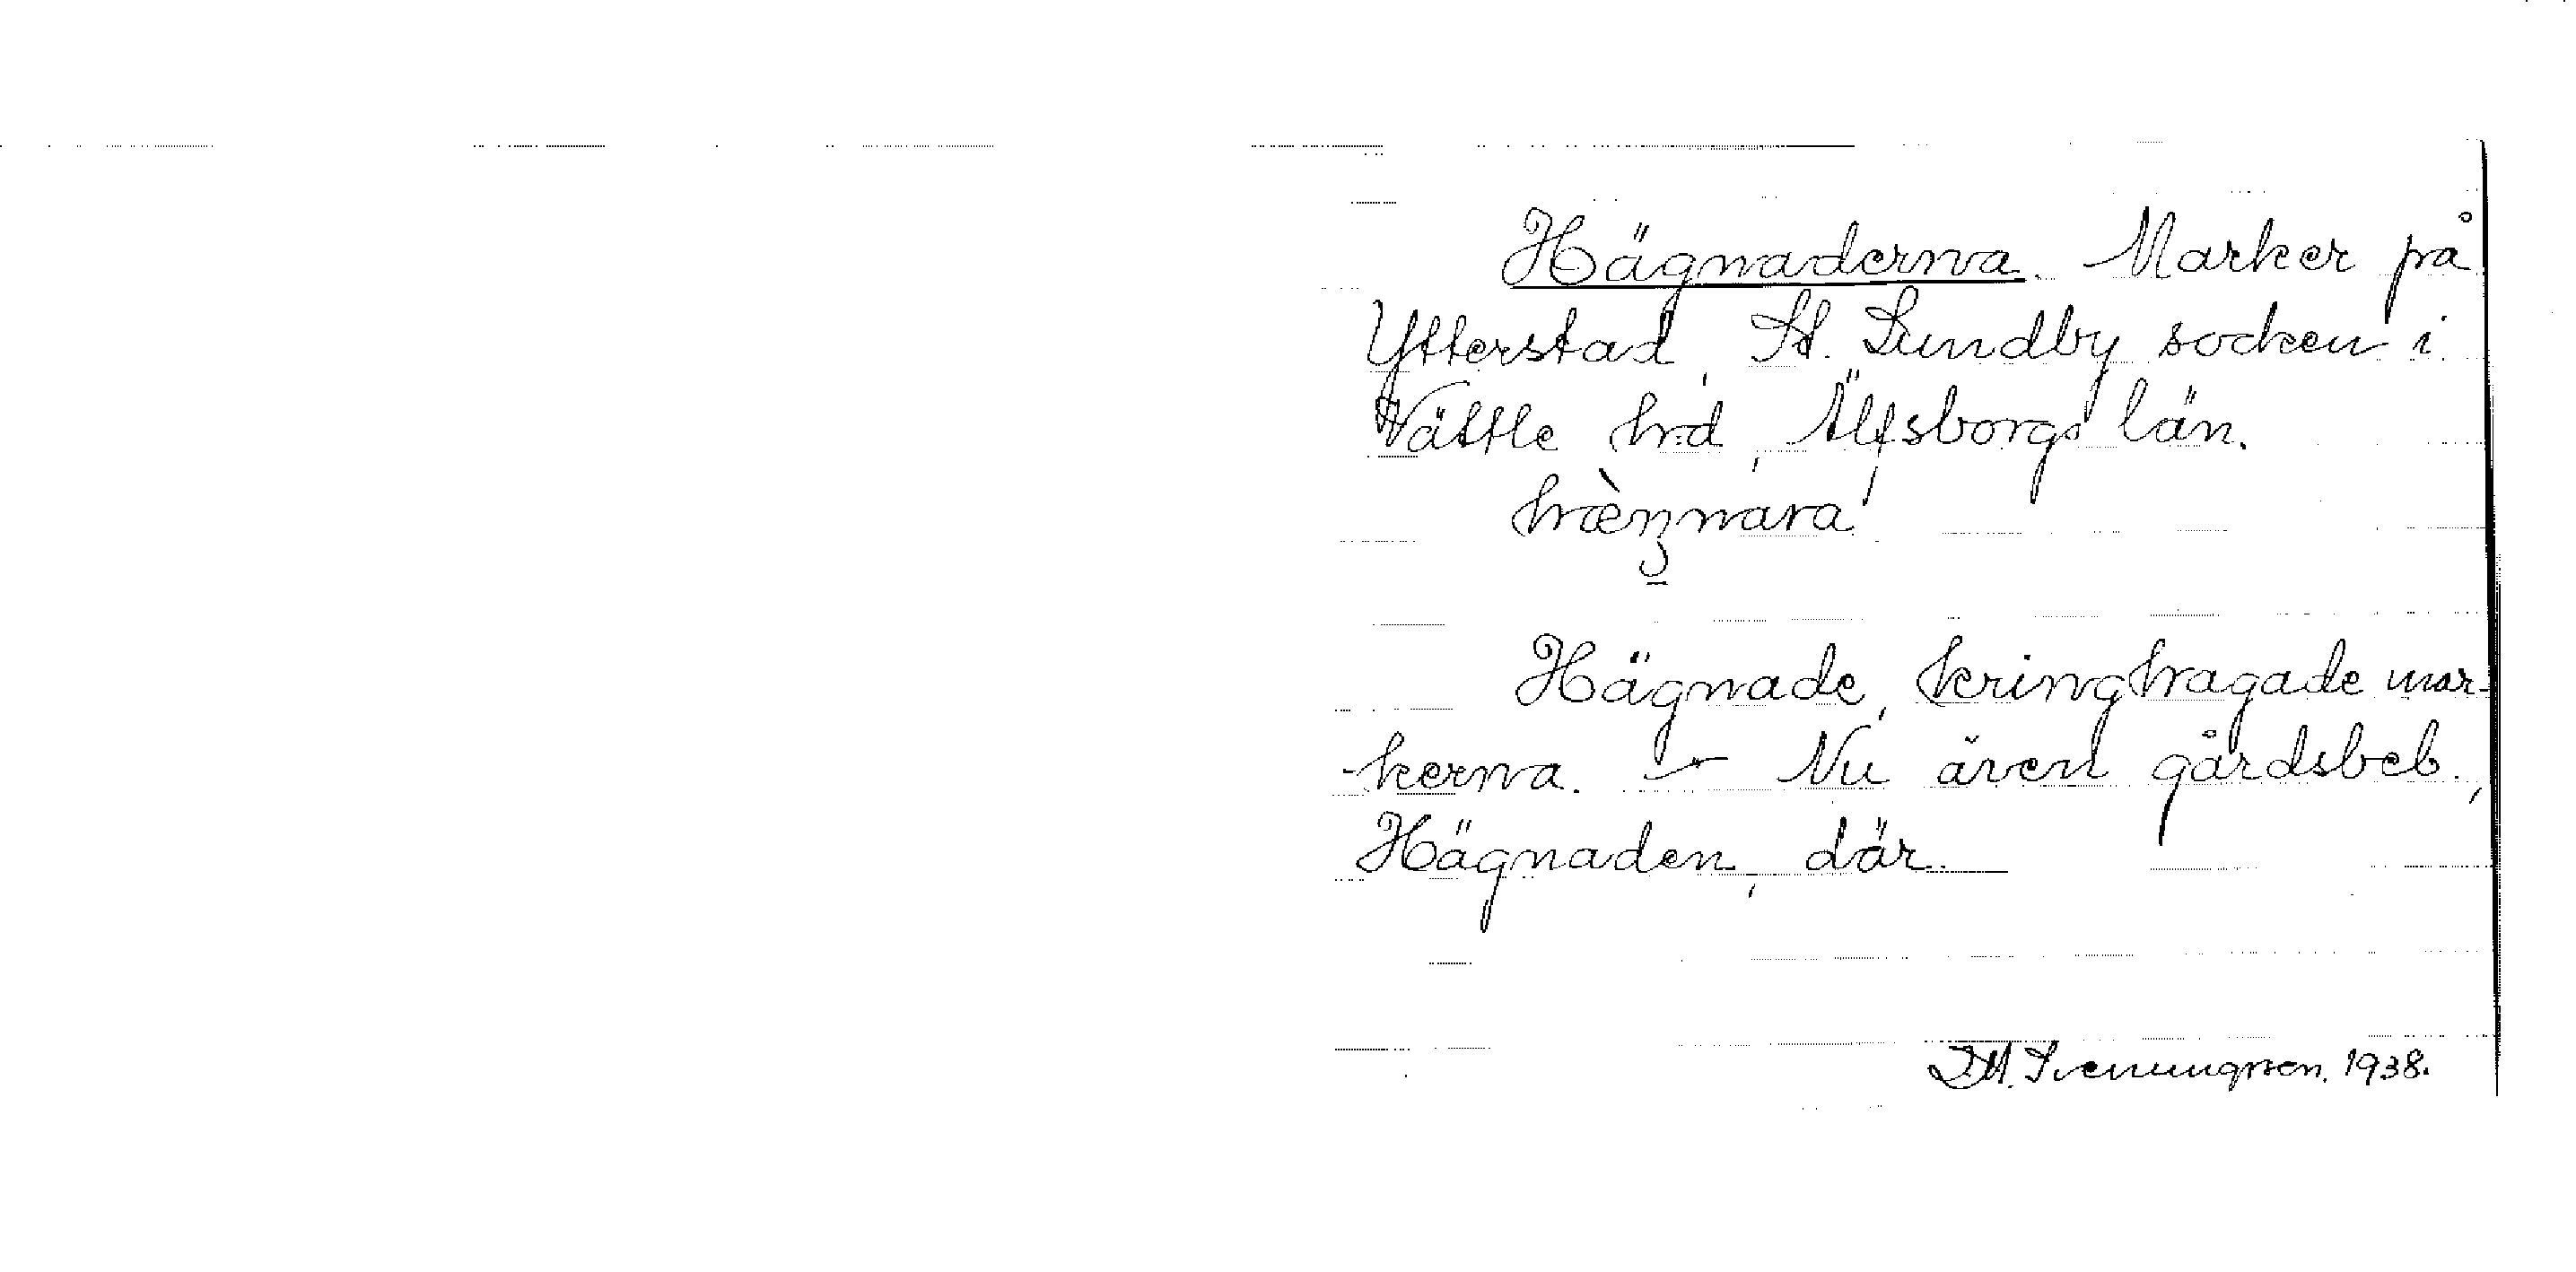 Hägnaderna. Marker på
Ytterstad, St. Lundby socken i
Vättle hrd, Älfsborgs län.
hæ̀ŋnara
Hägnade, kringhagade mar-
-kerna. — Nu även gårdsbeb.,
Hägnaden, där.
D.M. Svenungsson. 1938.